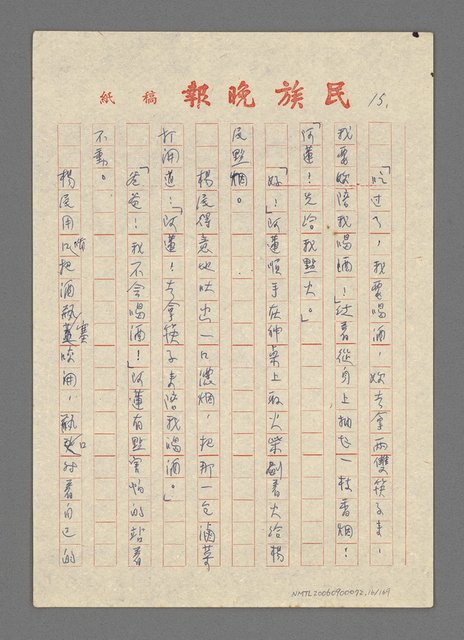 民族晚報 稿紙
15.
「吃过了，我要喝酒，妳去拿兩雙筷子來，
我要妳陪我喝酒！」說著從身上抽出一枝香烟！
「阿蓮！先給我點火。」
「好！」阿蓮順手在神桌上取火柴劃着火給楊
辰點烟。
楊辰得意地吐出一口濃烟，把那一包滷菜
打開道：「阿蓮！去拿筷子來陪我喝酒。」
「爸爸！我不会喝酒！」阿蓮有點害怕的站著
不動。
楊辰用口嘴把酒瓶蓋塞咬開，瓶口对着自己的
NMTL20060900092,16/169